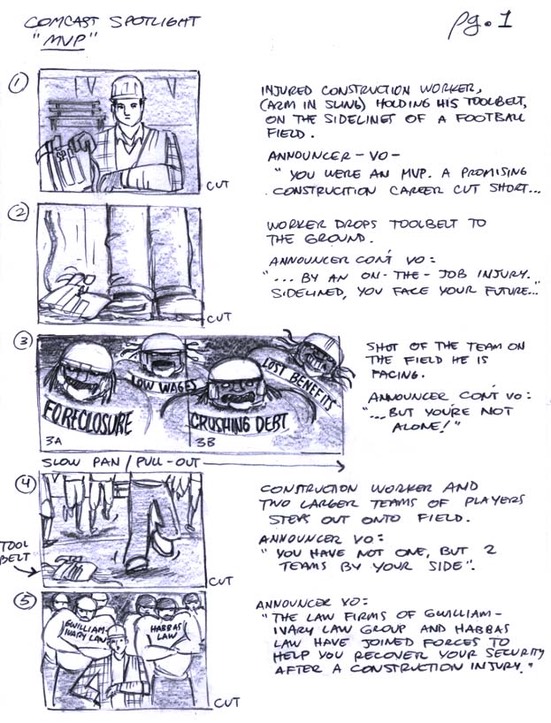 COMCAST SPOTLIGHT
"MVP"
pg. 1
1
INJURED CONSTRUCTION WORKER,
(ARM IN SLING) HOLDING HIS TOOLBELT,
ON THE SIDELINES OF A FOOTBALL
FIELD.
ANNOUNCER - VO -
"YOU WERE AN MVP. A PROMISING
CONSTRUCTION CAREER CUT SHORT...
CUT
2
WORKER DROPS TOOLBELT TO
THE GROUND.
ANNOUNCER CON'T VO:
"... BY AN ON-THE-JOB INJURY.
SIDELINED, YOU FACE YOUR FUTURE..."
CUT
3
FORECLOSURE
LOW WAGES
CRUSHING DEBT
LOST BENEFITS
3A
3B
SHOT OF THE TEAM ON
THE FIELD HE IS
FACING.
ANNOUNCER CON'T VO:
"...BUT YOU'RE NOT
ALONE!"
SLOW PAN / PULL-OUT
4
CONSTRUCTION WORKER AND
TWO LARGER TEAMS OF PLAYERS
STEPS OUT ONTO FIELD.
ANNOUNCER VO:
"YOU HAVE NOT ONE, BUT 2
TEAMS BY YOUR SIDE".
TOOL
BELT
CUT
5
GWILLIAM-
IVARY LAW
HABBAS
LAW
ANNOUNCER VO:
"THE LAW FIRMS OF GWILLIAM-
IVARY LAW GROUP AND HABBAS
LAW HAVE JOINED FORCES TO
HELP YOU RECOVER YOUR SECURITY
AFTER A CONSTRUCTION INJURY."
CUT